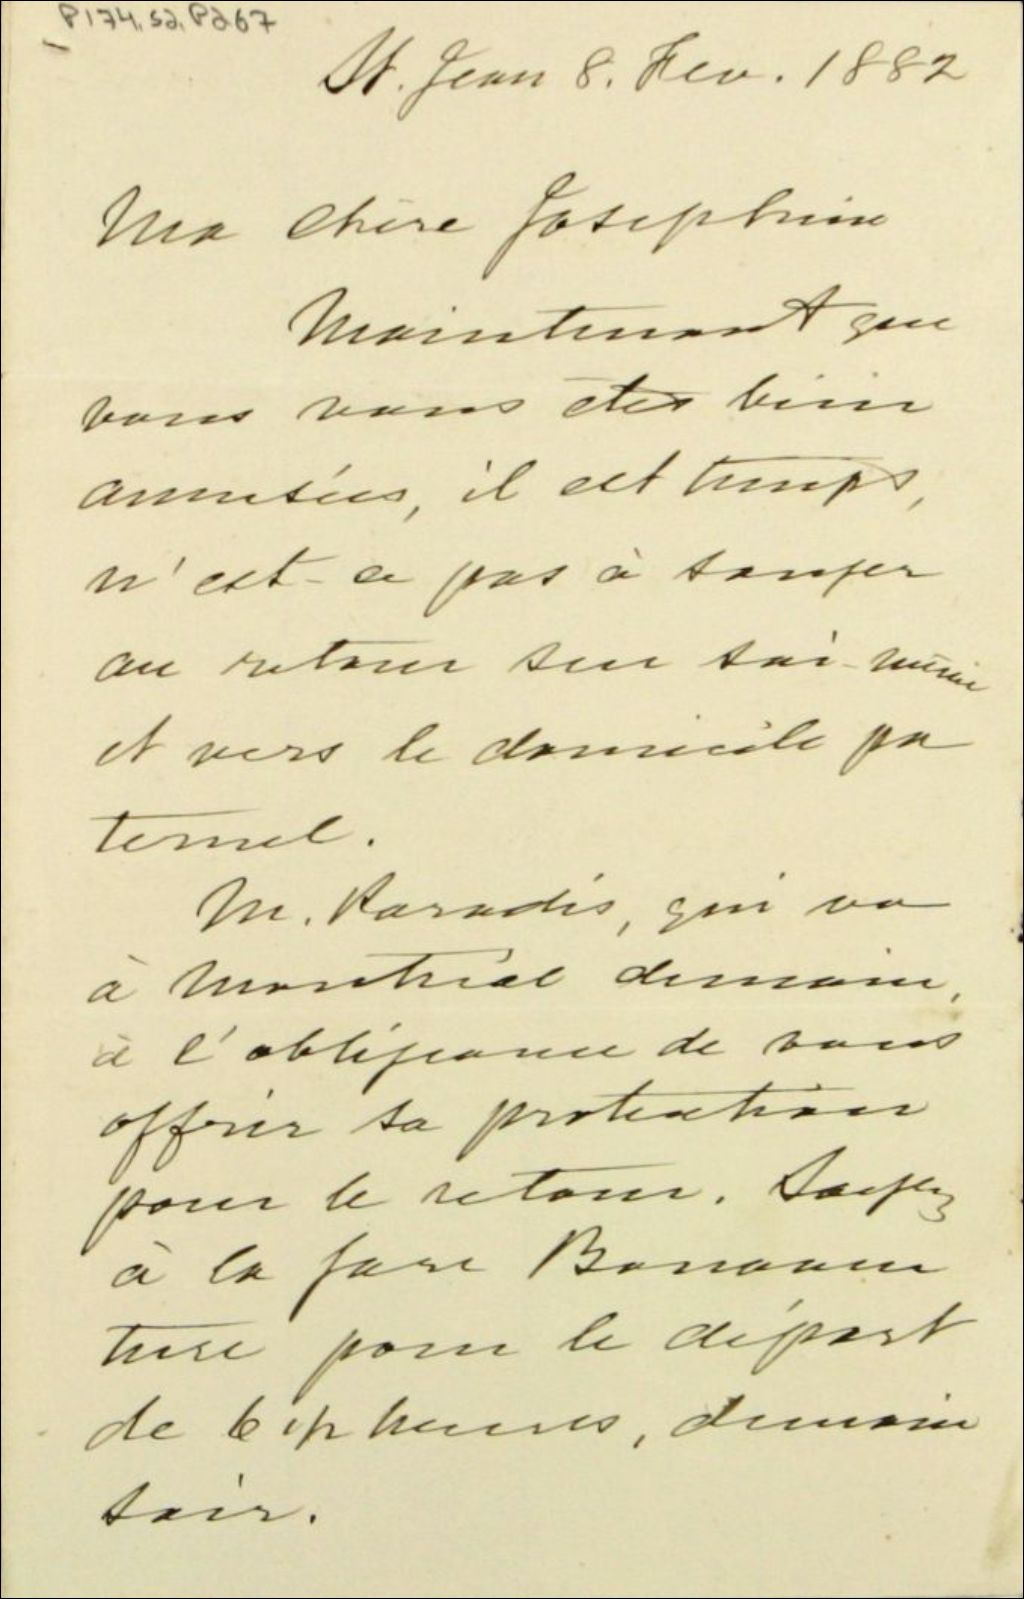 P174,S2,P267
St. Jean 8. Fev. 1882
Ma chère Josephine
Maintenant que
vous vous etes bien
amusées, il est temps,
n'est-ce pas à songer
au retour sur soi-même
et vers le domicile pa
ternel.
M. Paradis, qui va
à Montréal demain,
à l'obligeance de vous
offrir sa protection
pour le retour. Soyez
à la gare Bonaven
ture pour le départ
de 6 heures, demain
soir.